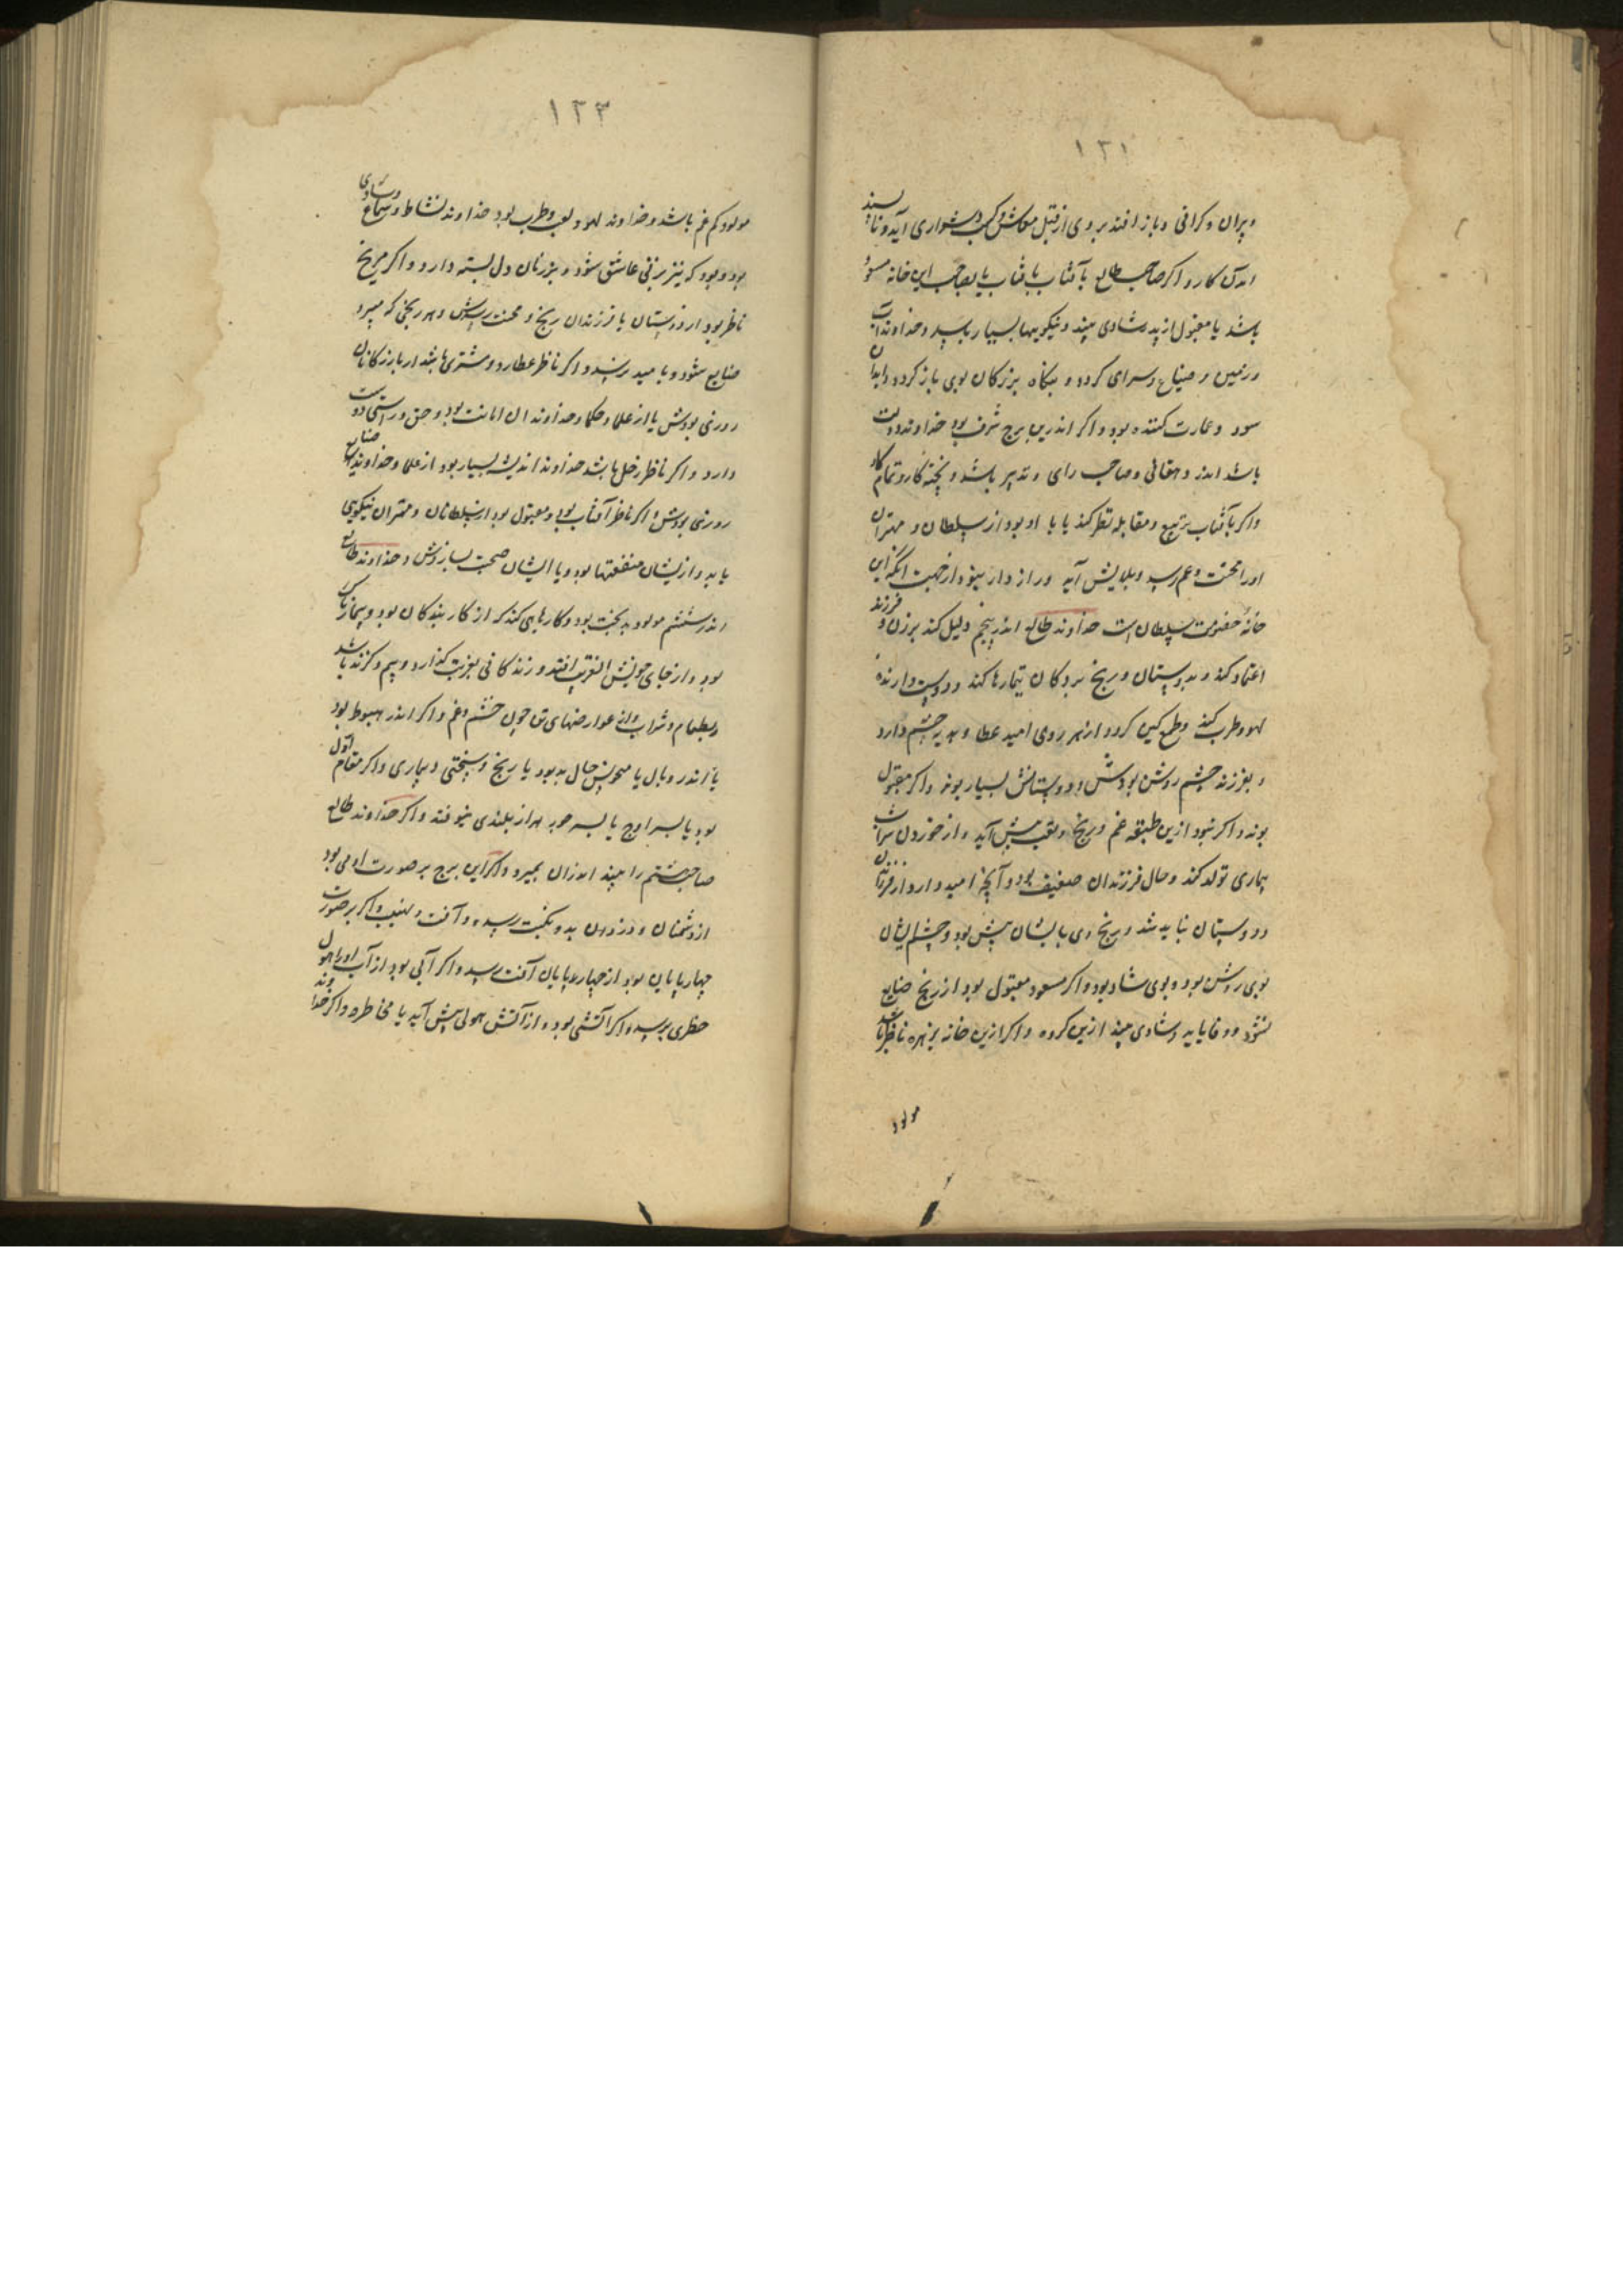 ۱۲۱
ویران و کرانی و باز افتد بر وی از قبل معاش و کسب دشواری آید و ناپسند
اندران کار و اگر صاحب طالع بآفتاب یا بصاحب این خانه مسعود
باشد یا مقبول از پدر شادی بیند و نیکوییها بسیار باشد و خداوند آب
و زمین و ضیاع و سرای گردد و بیکاه بزرگان بوی باز گردد و ابدان
سود و عمارت کننده بود و اگر اندرین برج شرف بود خداوند دولت
باشد اندر دهقانی و صاحب رای و تدبیر باشد و پخته کار و تمام کار
و اگر بآفتاب بتربیع و مقابله نظر کند یا با او بود از سلطان و مهتران
او را محنت و غم رسد و بلا پیش آید و راز دار نبود از جهت آنکه این
خانه خصومت سلطان است خداوند طالع اندر پنجم دلیل کند بر زن و فرزند
اعتماد کند و بدوستان و رنج بزرگان تیمارها کند و دوست دارنده
لهو و طرب کند و طمع کین گردد از هر روی امید عطا و هدیه چشم دارد
و بفرزند چشم روشن بودش و دوستانش بسیار بوند و اگر مقبول
بوند و اگر نبود ازین طبقه غم و رنج و تعب پیش آید و از خوردن شراب
بیماری تولد کند و حال فرزندان ضعیف بود و آنچه امید دارد از فرزندان
و دوستان نیابد شد و رنج وی بایشان بیش بود و چشم ایشان
بوی روشن بود و بوی شاد بود و اگر مسعود مقبول بود از رنج ضایع
نشود و وفا یابد و شادی بیند ازین گروه و اگر ازین خانه زهره ناظر باشد
مولود
۱۲۳
مولود کم غم باشد و خداوند لهو و لعب و طرب بود خداوند نشاط و سماع و شادی
بود و بود که نیز بر زنی عاشق شود و بر زنان دل بسته دارد و اگر مریخ
ناظر بود از دوستان یا فرزندان رنج و محنت رسدش و هر رنجی که میبرد
ضایع شود و با مید نرسد و اگر ناظر عطارد و مشتری باشد از بازرگانان
روزی بودش یا از علما و حکما و خداوندان امانت بود و حق و راستی دوست
دارد و اگر ناظر زحل باشد خداوند اندیشه بسیار بود از علما و خداوندان ضیاع
روزی بودش و اگر ناظر آفتاب بود و مقبول بود از سلطانان و مهتران نیکویی
یابد و ازیشان منفعتها بود و با ایشان صحبت سازدش و خداوند طالع
اندر ششم مولود بدبخت بود و کارهایی کند که از کار بندگان بود و بیمارناک
بود و از جای خویش الغریب افتد و زندگانی بغربت گذارد و بیم و گزند باشد
و بطعام و شراب و از عوارضهای تن چون خشم و غم و اگر اندر هبوط بود
یا اندر وبال یا منحوس حال بد بود یا رنج و سختی و بیماری و اگر مقام اول
بود یا بسر اوج یا بسر جوزهر از بلندی بیوفتد و اگر خداوند طالع
صاحب هشتم را بیند اندران بمیرد و اگر این برج بر صورت آدمی بود
از دشمنان و دزدان بدو نکبت رسد و آفت و نهیب و اگر بر صورت
چهارپایان بود از چهارپایان آفت رسد و اگر آبی بود از آب او را هول
خطری برسد و اگر آتشی بود از آتش هولی پیش آید یا مخاطره و اگر خداوند